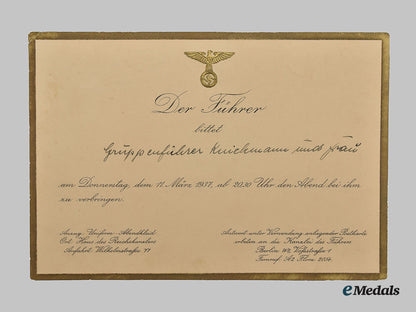 Der Führer
bittet
Gruppenführer Knickmann und Frau
am Donnerstag, dem 11. März 1937, ab 20.30 Uhr den Abend bei ihm
zu verbringen.
Anzug: Uniform, Abendkleid
Ort: Haus des Reichskanzlers
Anfahrt: Wilhelmstraße 77
Antwort unter Verwendung anliegender Postkarte
erbeten an die Kanzlei des Führers
Berlin W8, Voßstraße 1
Fernruf: A2 Flora
eMedals